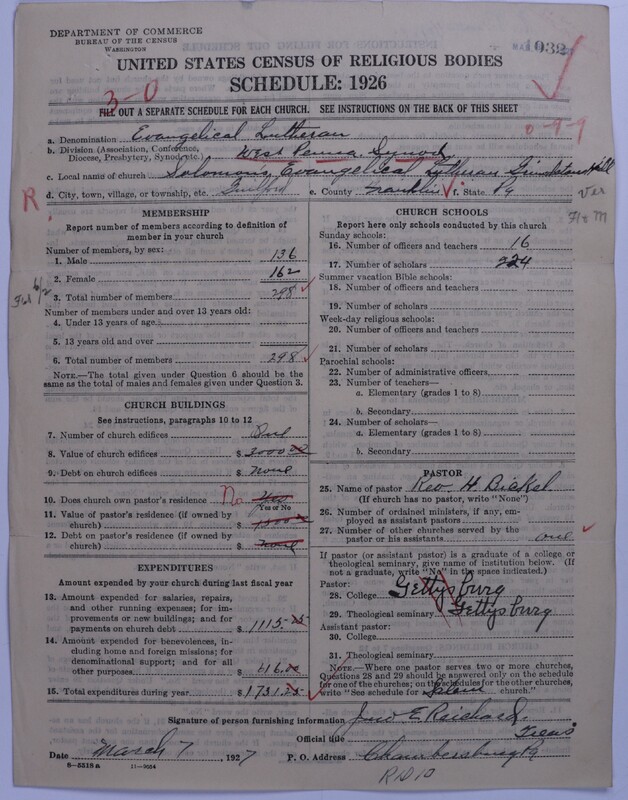 DEPARTMENT OF COMMERCE
BUREAU OF THE CENSUS
WASHINGTON
UNITED STATES CENSUS OF RELIGIOUS BODIES
SCHEDULE: 1926
3-0
FILL OUT A SEPARATE SCHEDULE FOR EACH CHURCH. SEE INSTRUCTIONS ON THE BACK OF THIS SHEET
0-9-9
a. Denomination Evangelical Lutheran
b. Division (Association, Conference, Diocese, Presbytery, Synod, etc.) West Penna. Synod
c. Local name of church Solomons, Evangelical Lutheran
d. City, town, village, or township, etc. Guilford e. County Franklin f. State Pa
R
MEMBERSHIP
Report number of members according to definition of member in your church
Number of members, by sex:
1. Male 136
2. Female 162
3. Total number of members 298
Number of members under and over 13 years old:
4. Under 13 years of age
5. 13 years old and over
6. Total number of members 298
NOTE.—The total given under Question 6 should be the same as the total of males and females given under Question 3.
CHURCH BUILDINGS
See instructions, paragraphs 10 to 12
7. Number of church edifices One
8. Value of church edifices $ 2000
9. Debt on church edifices $ none
10. Does church own pastor's residence No Yes
Yes or No
11. Value of pastor's residence (if owned by church) $
12. Debt on pastor's residence (if owned by church) $ none
EXPENDITURES
Amount expended by your church during last fiscal year
13. Amount expended for salaries, repairs, and other running expenses; for improvements or new buildings; and for payments on church debt $ 1115
14. Amount expended for benevolences, including home and foreign missions; for denominational support; and for all other purposes 616
15. Total expenditures during year $ 1731
CHURCH SCHOOLS
Report here only schools conducted by this church
Sunday schools:
16. Number of officers and teachers 16
17. Number of scholars 224
Summer vacation Bible schools:
18. Number of officers and teachers
19. Number of scholars
Week-day religious schools:
20. Number of officers and teachers
21. Number of scholars
Parochial schools:
22. Number of administrative officers
23. Number of teachers—
a. Elementary (grades 1 to 8)
b. Secondary
24. Number of scholars—
a. Elementary (grades 1 to 8)
b. Secondary
PASTOR
25. Name of pastor Rev. H. Bickel
(If church has no pastor, write "None")
26. Number of ordained ministers, if any, employed as assistant pastors
27. Number of other churches served by the pastor or his assistants one
If pastor (or assistant pastor) is a graduate of a college or theological seminary, give name of institution below. (If not a graduate, write "No" in the space indicated.)
Pastor:
28. College Gettysburg
29. Theological seminary Gettysburg
Assistant pastor:
30. College
31. Theological seminary
NOTE.—Where one pastor serves two or more churches, Questions 28 and 29 should be answered only on the schedule for one of the churches; on the schedules for the other churches, write "See schedule for Salem church."
Signature of person furnishing information Jno E Reichard.
Official title Treas
Date March 7, 1927 P. O. Address Chambersburg Pa
8-5318 a 11-9054
R D 10